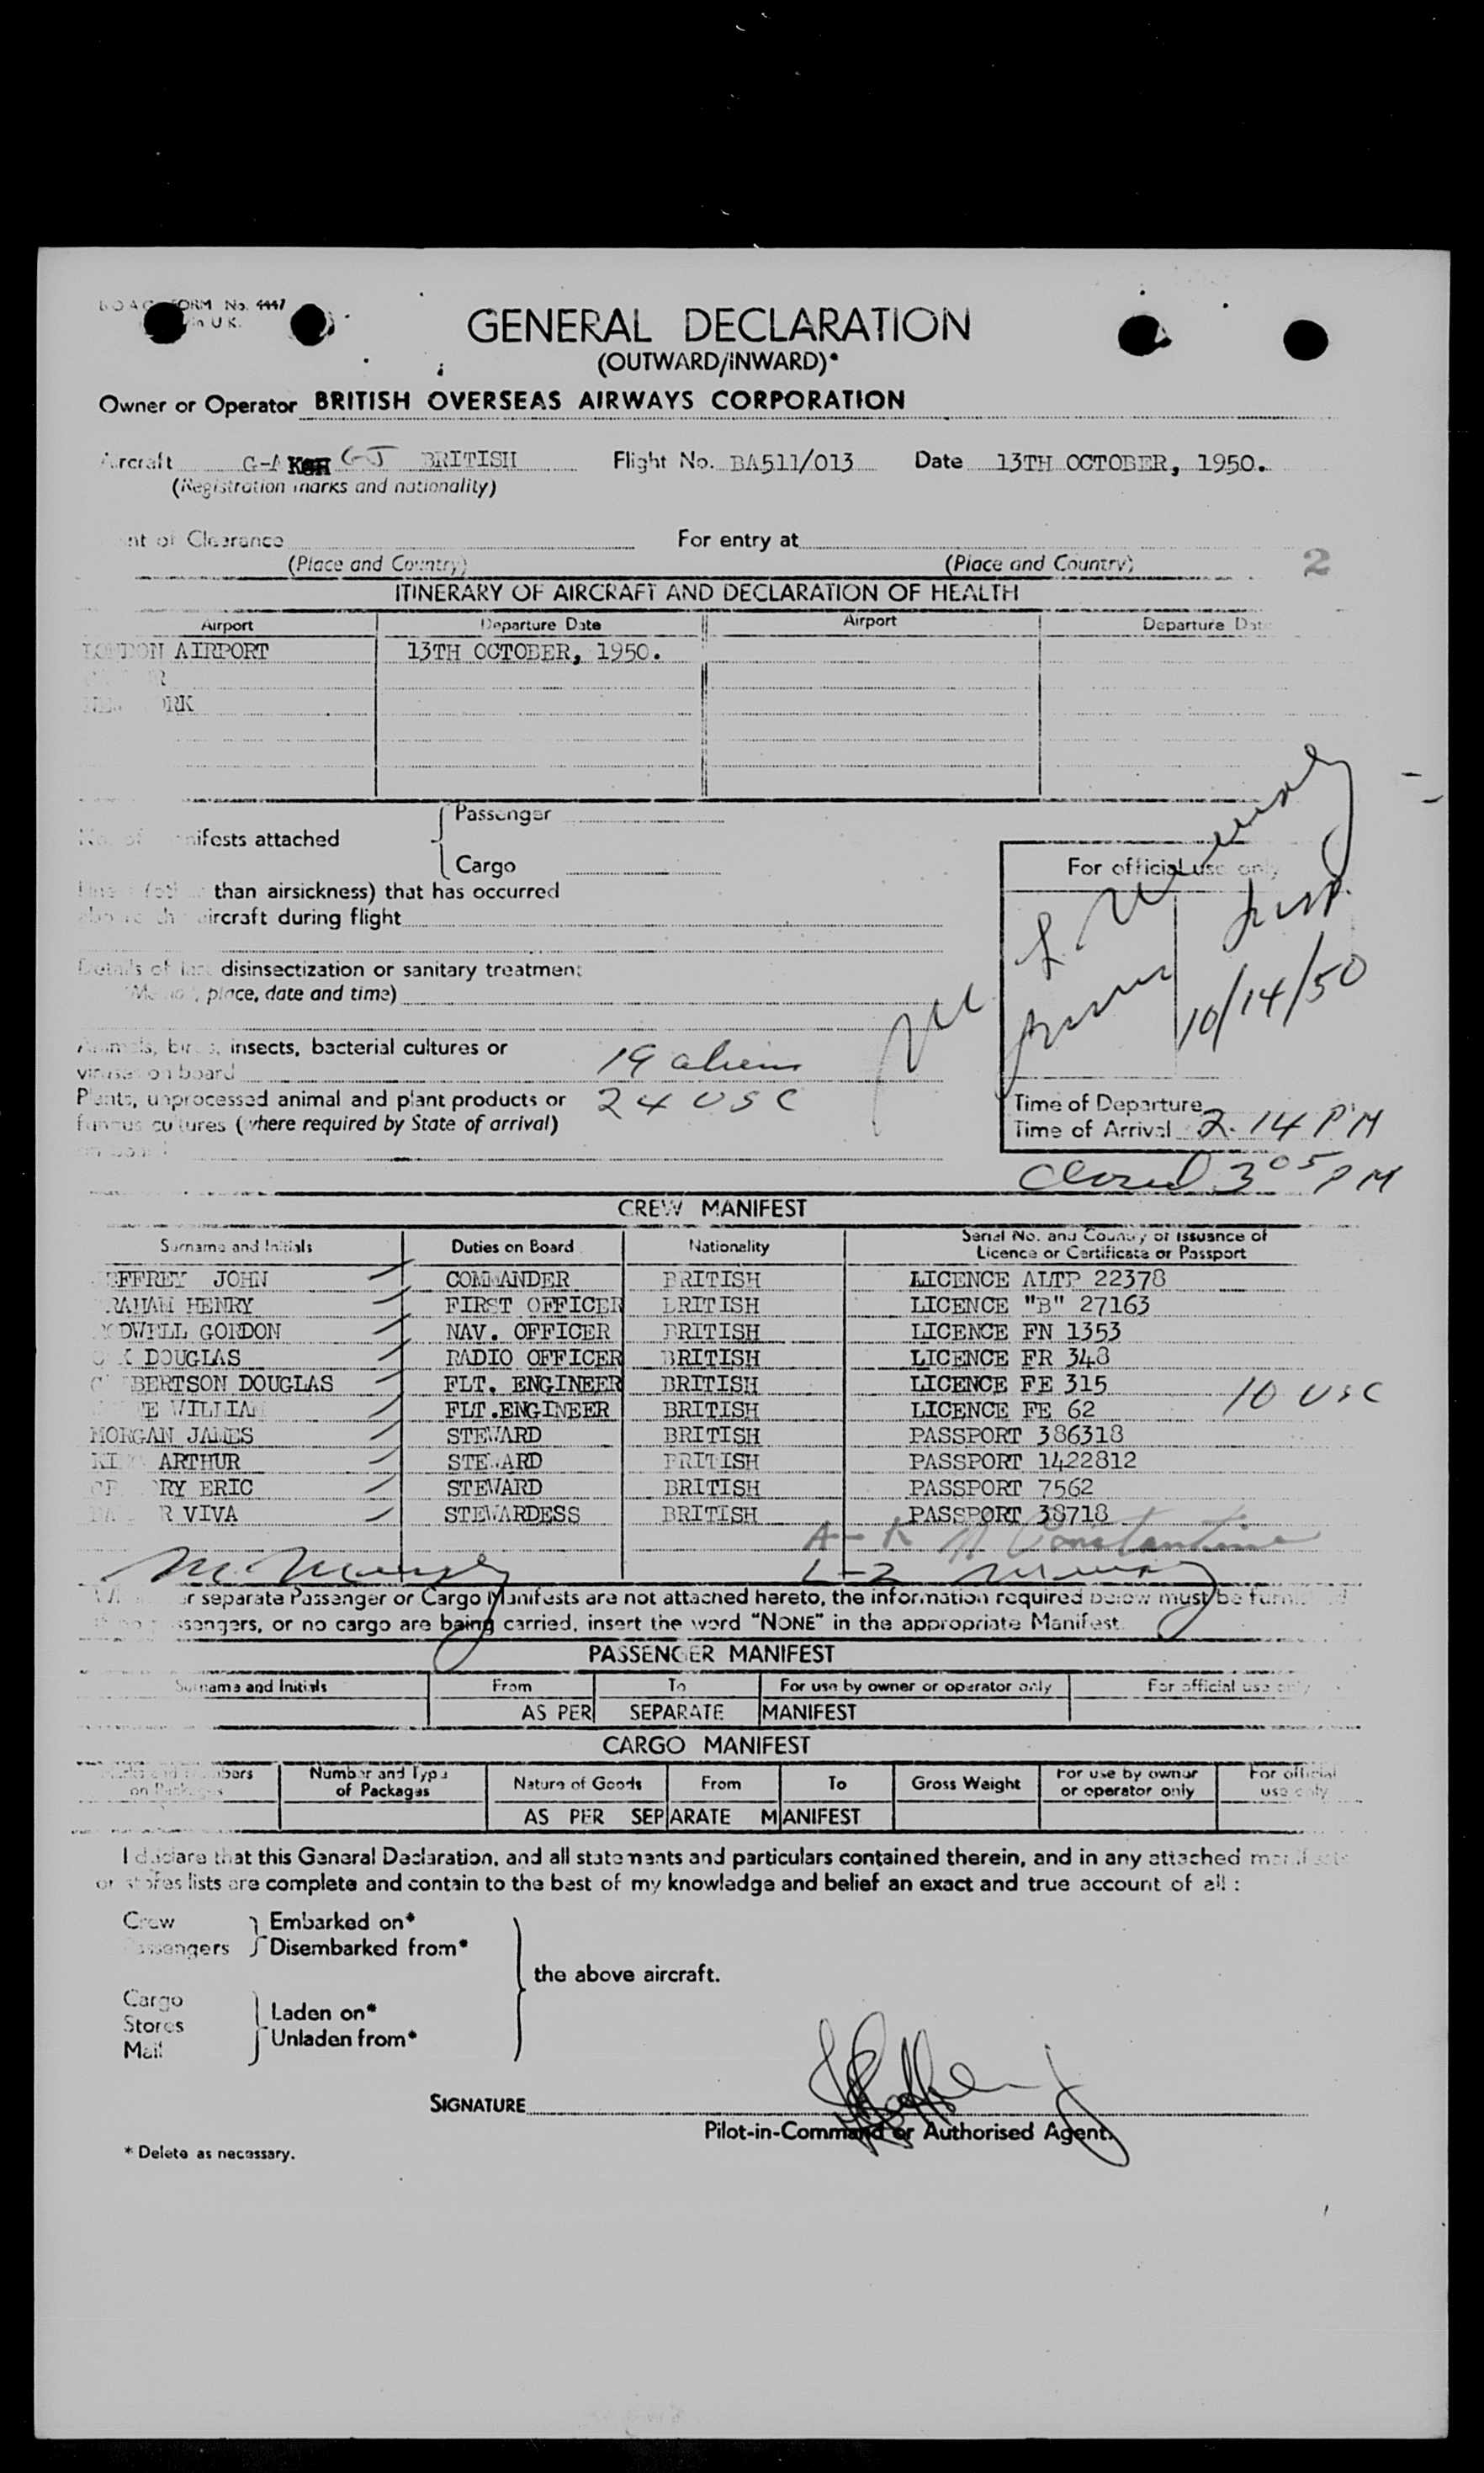 FORM No. 4447
in U.K.
GENERAL DECLARATION
(OUTWARD/INWARD)*
Owner or Operator BRITISH OVERSEAS AIRWAYS CORPORATION
Aircraft G-A G-J BRITISH Flight No. BA511/013 Date 13TH OCTOBER, 1950.
(Registration marks and nationality)
of Clearance For entry at
(Place and Country) (Place and Country)
2
ITINERARY OF AIRCRAFT AND DECLARATION OF HEALTH
Airport Departure Date Airport Departure
LONDON AIRPORT 13TH OCTOBER, 1950.
Passenger
attached
Cargo
For official use only
than airsickness) that has occurred
aircraft during flight
Details of disinsectization or sanitary treatment
place, date and time)
10/14/50
insects, bacterial cultures or 19 aliens
on board
Plants, unprocessed animal and plant products or 24 USC
cultures (where required by State of arrival)
Time of Departure
Time of Arrival 2.14 PM
Closed 3 05 PM
CREW MANIFEST
Surname and Initials Duties on Board Nationality Serial No. and Country of Issuance of
Licence or Certificate or Passport
JOHN COMMANDER BRITISH LICENCE ALTP 22378
HENRY FIRST OFFICER BRITISH LICENCE "B" 27163
GORDON NAV. OFFICER BRITISH LICENCE FN 1353
DOUGLAS RADIO OFFICER BRITISH LICENCE FR 348
DOUGLAS FLT. ENGINEER BRITISH LICENCE FE 315
10 USC
WILLIAM FLT.ENGINEER BRITISH LICENCE FE 62
MORGAN JAMES STEWARD BRITISH PASSPORT 386318
ARTHUR STEWARD BRITISH PASSPORT 1422812
ERIC STEWARD BRITISH PASSPORT 7562
VIVA STEWARDESS BRITISH PASSPORT 38718
A-K Constantine
L-Z
separate Passenger or Cargo Manifests are not attached hereto, the information required below must be
or no cargo are being carried, insert the word "NONE" in the appropriate Manifest.
PASSENGER MANIFEST
Surname and Initials From To For use by owner or operator only For official use only
AS PER SEPARATE MANIFEST
CARGO MANIFEST
Number and Type Nature of Goods From To Gross Weight For use by owner For official
on Packages of Packages or operator only use only
AS PER SEPARATE MANIFEST
I declare that this General Declaration, and all statements and particulars contained therein, and in any attached manifests
or stores lists are complete and contain to the best of my knowledge and belief an exact and true account of all :
Crew Embarked on*
Passengers Disembarked from*
the above aircraft.
Cargo
Stores Laden on*
Mail Unladen from*
SIGNATURE
Pilot-in-Command or Authorised Agent.
* Delete as necessary.